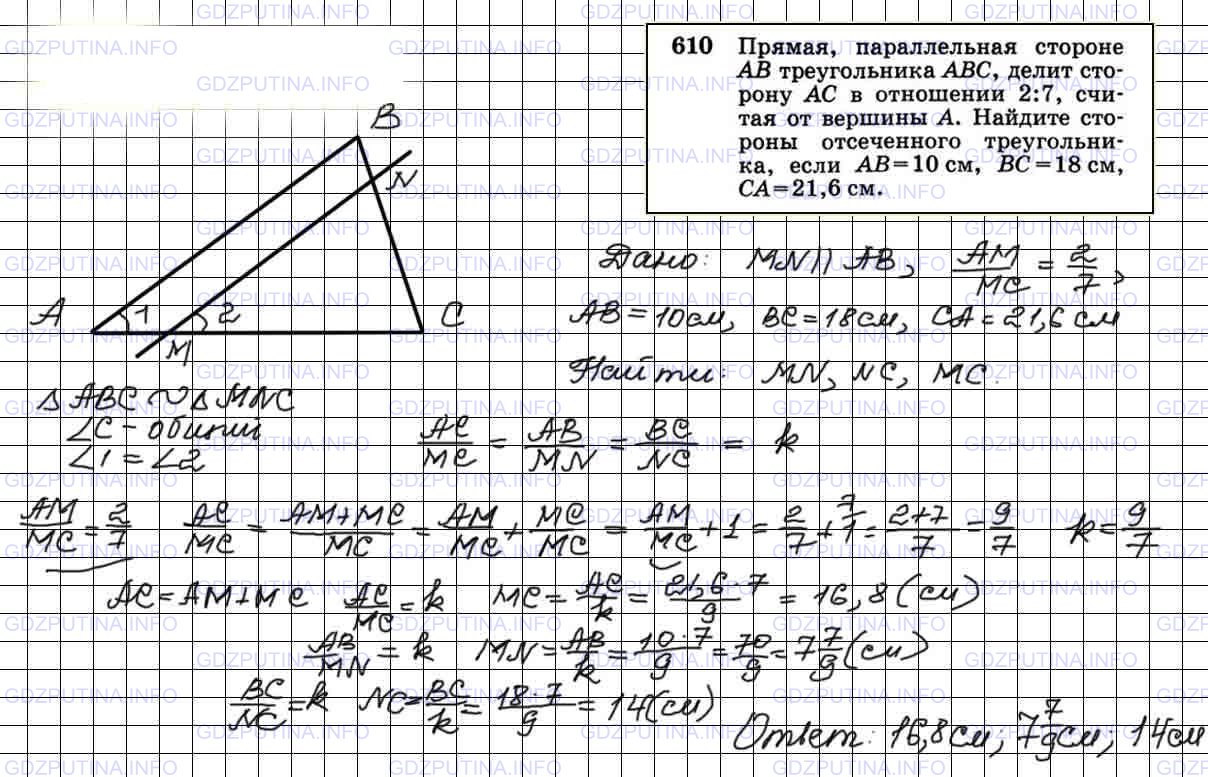 610 Прямая, параллельная стороне
AB треугольника ABC, делит сто-
рону AC в отношении 2:7, счи-
тая от вершины A. Найдите сто-
роны отсеченного треугольни-
ка, если AB=10 см, BC=18 см,
CA=21,6 см.
B
N
A 1 2 C
M
Дано: MN || AB, AM/MC = 2/7,
AB = 10см, BC = 18см, CA = 21,6 см
Найти: MN, NC, MC.
△ ABC ~ △ MNC
∠C - общий
∠1 = ∠2
AC/MC = AB/MN = BC/NC = k
AM/MC = 2/7 AC/MC = AM+MC/MC = AM/MC + MC/MC = AM/MC + 1 = 2/7 + 7/1 = 2+7/7 = 9/7 k = 9/7
AC = AM+MC AC/MC = k MC = AC/k = 21,6·7/9 = 16,8 (см)
AB/MN = k MN = AB/k = 10·7/9 = 70/9 = 7 7/9 (см)
BC/NC = k NC = BC/k = 18·7/9 = 14(см)
Ответ: 16,8см; 7 7/9см; 14см
GDZPUTINA.INFO